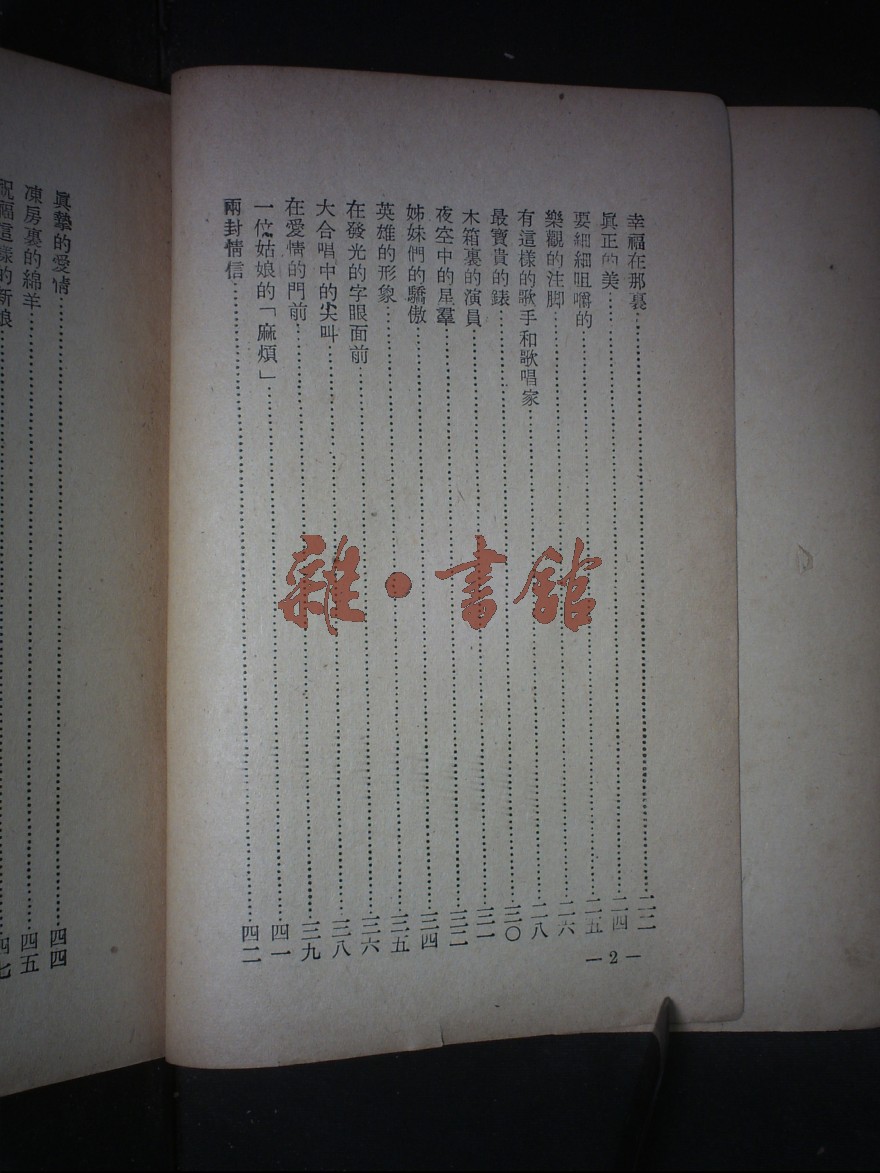 幸福在那裏……二二
眞正的美……二四
要細細咀嚼的……二五
樂觀的注脚……二六
有這樣的歌手和歌唱家……二八
最寶貴的錶……三〇
木箱裏的演員……三一
夜空中的星羣……三二
姊妹們的驕傲……三四
英雄的形象……三五
在發光的字眼面前……三六
大合唱中的尖叫……三八
在愛情的門前……三九
一位姑娘的「麻煩」……四一
兩封情信……四二
—2—
眞摯的愛情……四四
凍房裏的綿羊……四五
祝福這樣的新娘……四七
雜·書館